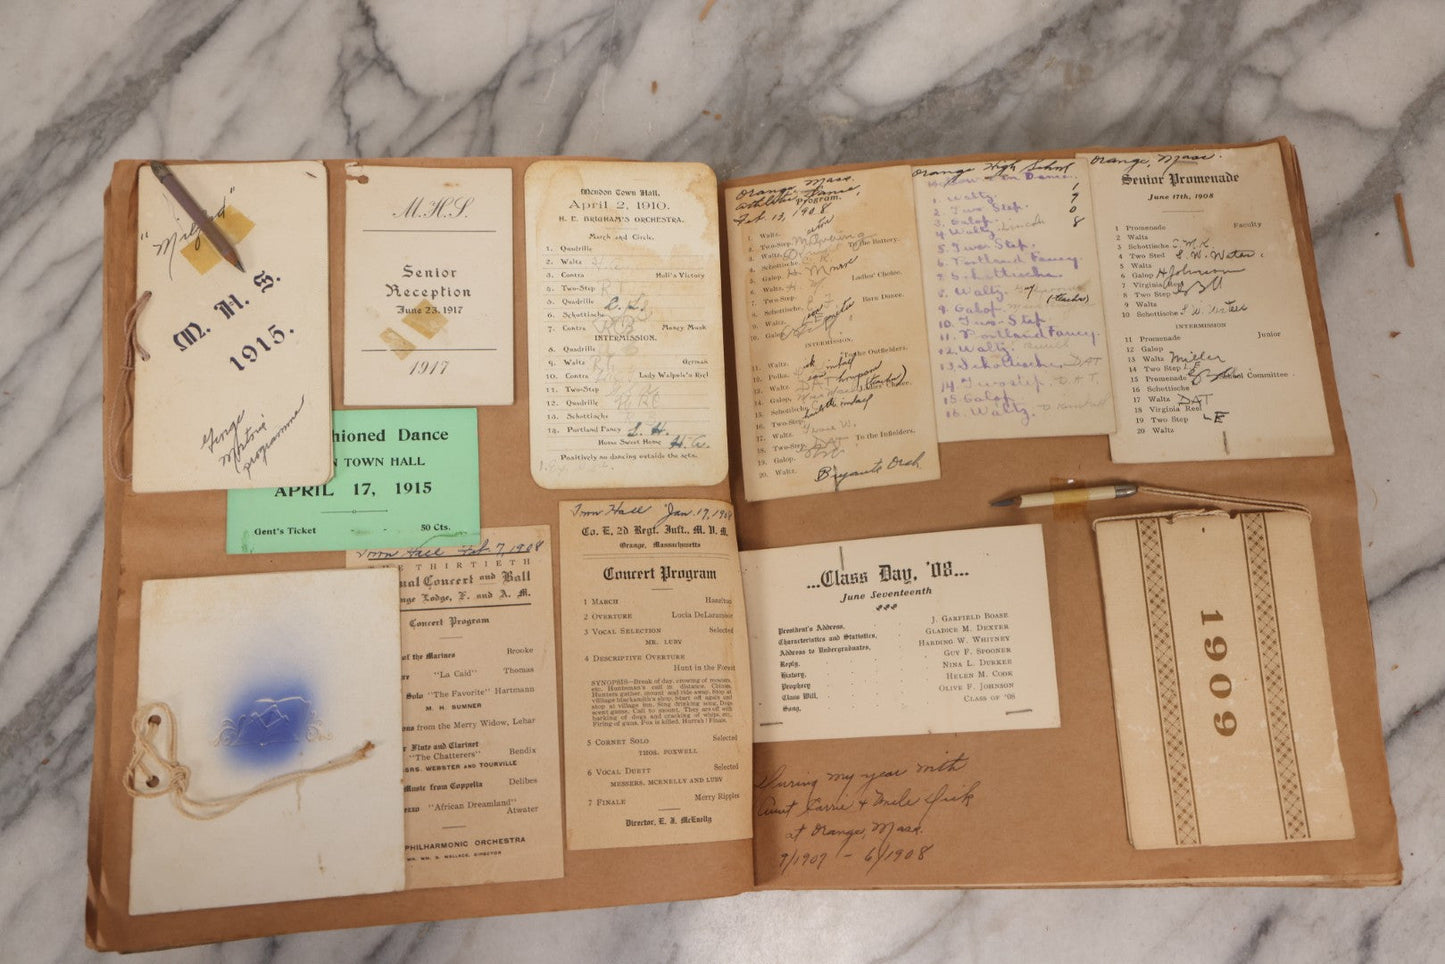 "Milford"
M. H. S.
1915.
M.H.S.
Senior
Reception
June 23, 1917
1917
hioned Dance
N TOWN HALL
APRIL 17, 1915
Gent's Ticket - - 50 Cts.
Mendon Town Hall,
April 2, 1910.
H. E. BRIGHAM'S ORCHESTRA.
March and Circle.
1. Quadrille
2. Waltz
3. Contra Hull's Victory
4. Two-Step
5. Quadrille
6. Schottische
7. Contra Money Musk
INTERMISSION.
8. Quadrille
9. Waltz German
10. Contra Lady Walpole's Reel
11. Two-Step
12. Quadrille
13. Schottische
14. Portland Fancy
Home Sweet Home
Positively no dancing outside the sets.
Town Hall Feb. 7, 1908
THE THIRTIETH
ual Concert and Ball
nge Lodge, F. and A. M.
Concert Program
of the Marines Brooke
"La Caid" Thomas
Solo "The Favorite" Hartmann
M. H. SUMNER
ons from the Merry Widow, Lehar
r Flute and Clarinet
"The Chatterers" Bendix
SRS. WEBSTER AND TOURVILLE
Music from Coppelia Delibes
ezzo "African Dreamland"
Atwater
PHILHARMONIC ORCHESTRA
MR. WM. S. WALLACE, DIRECTOR
Town Hall Jan. 17, 1908
Co. E, 2d Regt. Inft., M. V. M.
Orange, Massachusetts
Concert Program
1 MARCH Hazelton
2 OVERTURE Lucia DeLarammor
3 VOCAL SELECTION Selected
MR. LUBY
4 DESCRIPTIVE OVERTURE
Hunt in the Forest
SYNOPSIS—Break of day, crowing of roosters,
etc. Huntsman's call in distance. Chimes.
Hunters gather, mount and ride away. Stop at
village blacksmith's shop. Start off again and
stop at village inn. Sing drinking song. Dogs
scent game. Call to mount. They are off with
barking of dogs and cracking of whips, etc.
Firing of guns. Fox is killed. Hurrah! Finale.
5 CORNET SOLO Selected
THOS. POXWELL
6 VOCAL DUETT Selected
MESSERS. MCENELLY AND LUBY
7 FINALE Merry Ripples
Director, E. J. McEnelly
Orange, Mass.
Athletic Dance,
Program.
Feb. 13, 1908
1. Waltz.
2. Two-Step.
3. Waltz. To the Battery.
4. Schottische.
5. Galop.
6. Waltz. Ladies' Choice.
7. Two-Step.
8. Schottische. Barn Dance.
9. Waltz.
10. Galop.
INTERMISSION.
11. Waltz. To the Outfielders.
12. Polka.
13. Waltz.
14. Galop.
15. Schottische.
16. Waltz.
17. Waltz.
18. Two-Step. To the Infielders.
19. Galop.
20. Waltz.
Bryant's Orch
Orange High School
1908
1. Waltz.
2. Two Step.
3. Galop.
4. Waltz. Lincoln
5. Two Step.
6. Portland Fancy.
7. Schottische.
8. Waltz.
(teacher)
9. Galop.
10. Two-Step.
11. Portland Fancy.
12. Waltz.
13. Schottische. DAT
14. Two step. D.A.T.
15. Galop.
16. Waltz.
Orange, Mass.
Senior Promenade
June 17th, 1908
1 Promenade Faculty
2 Waltz
3 Schottische
4 Two Sted
5 Waltz
6 Galop
7 Virginia Reel
8 Two Step
9 Waltz
10 Schottische
INTERMISSION
11 Promenade Junior
12 Galop
13 Waltz Miller
14 Two Step
15 Promenade School Committee
16 Schottische
17 Waltz DAT
18 Virginia Reel
19 Two Step
20 Waltz
...Class Day, '08...
June Seventeenth
President's Address, J. GARFIELD BOASE
Characteristics and Statistics, GLADICE M. DEXTER
Address to Undergraduates, HARDING W. WHITNEY
Reply, GUY F. SPOONER
History, NINA L. DURKEE
Prophecy HELEN M. COOK
Class Will, OLIVE F. JOHNSON
Song, CLASS OF '08
1909
During my year with
Aunt Carrie & Uncle Dick
at Orange, Mass.
9/1907 - 6/1908